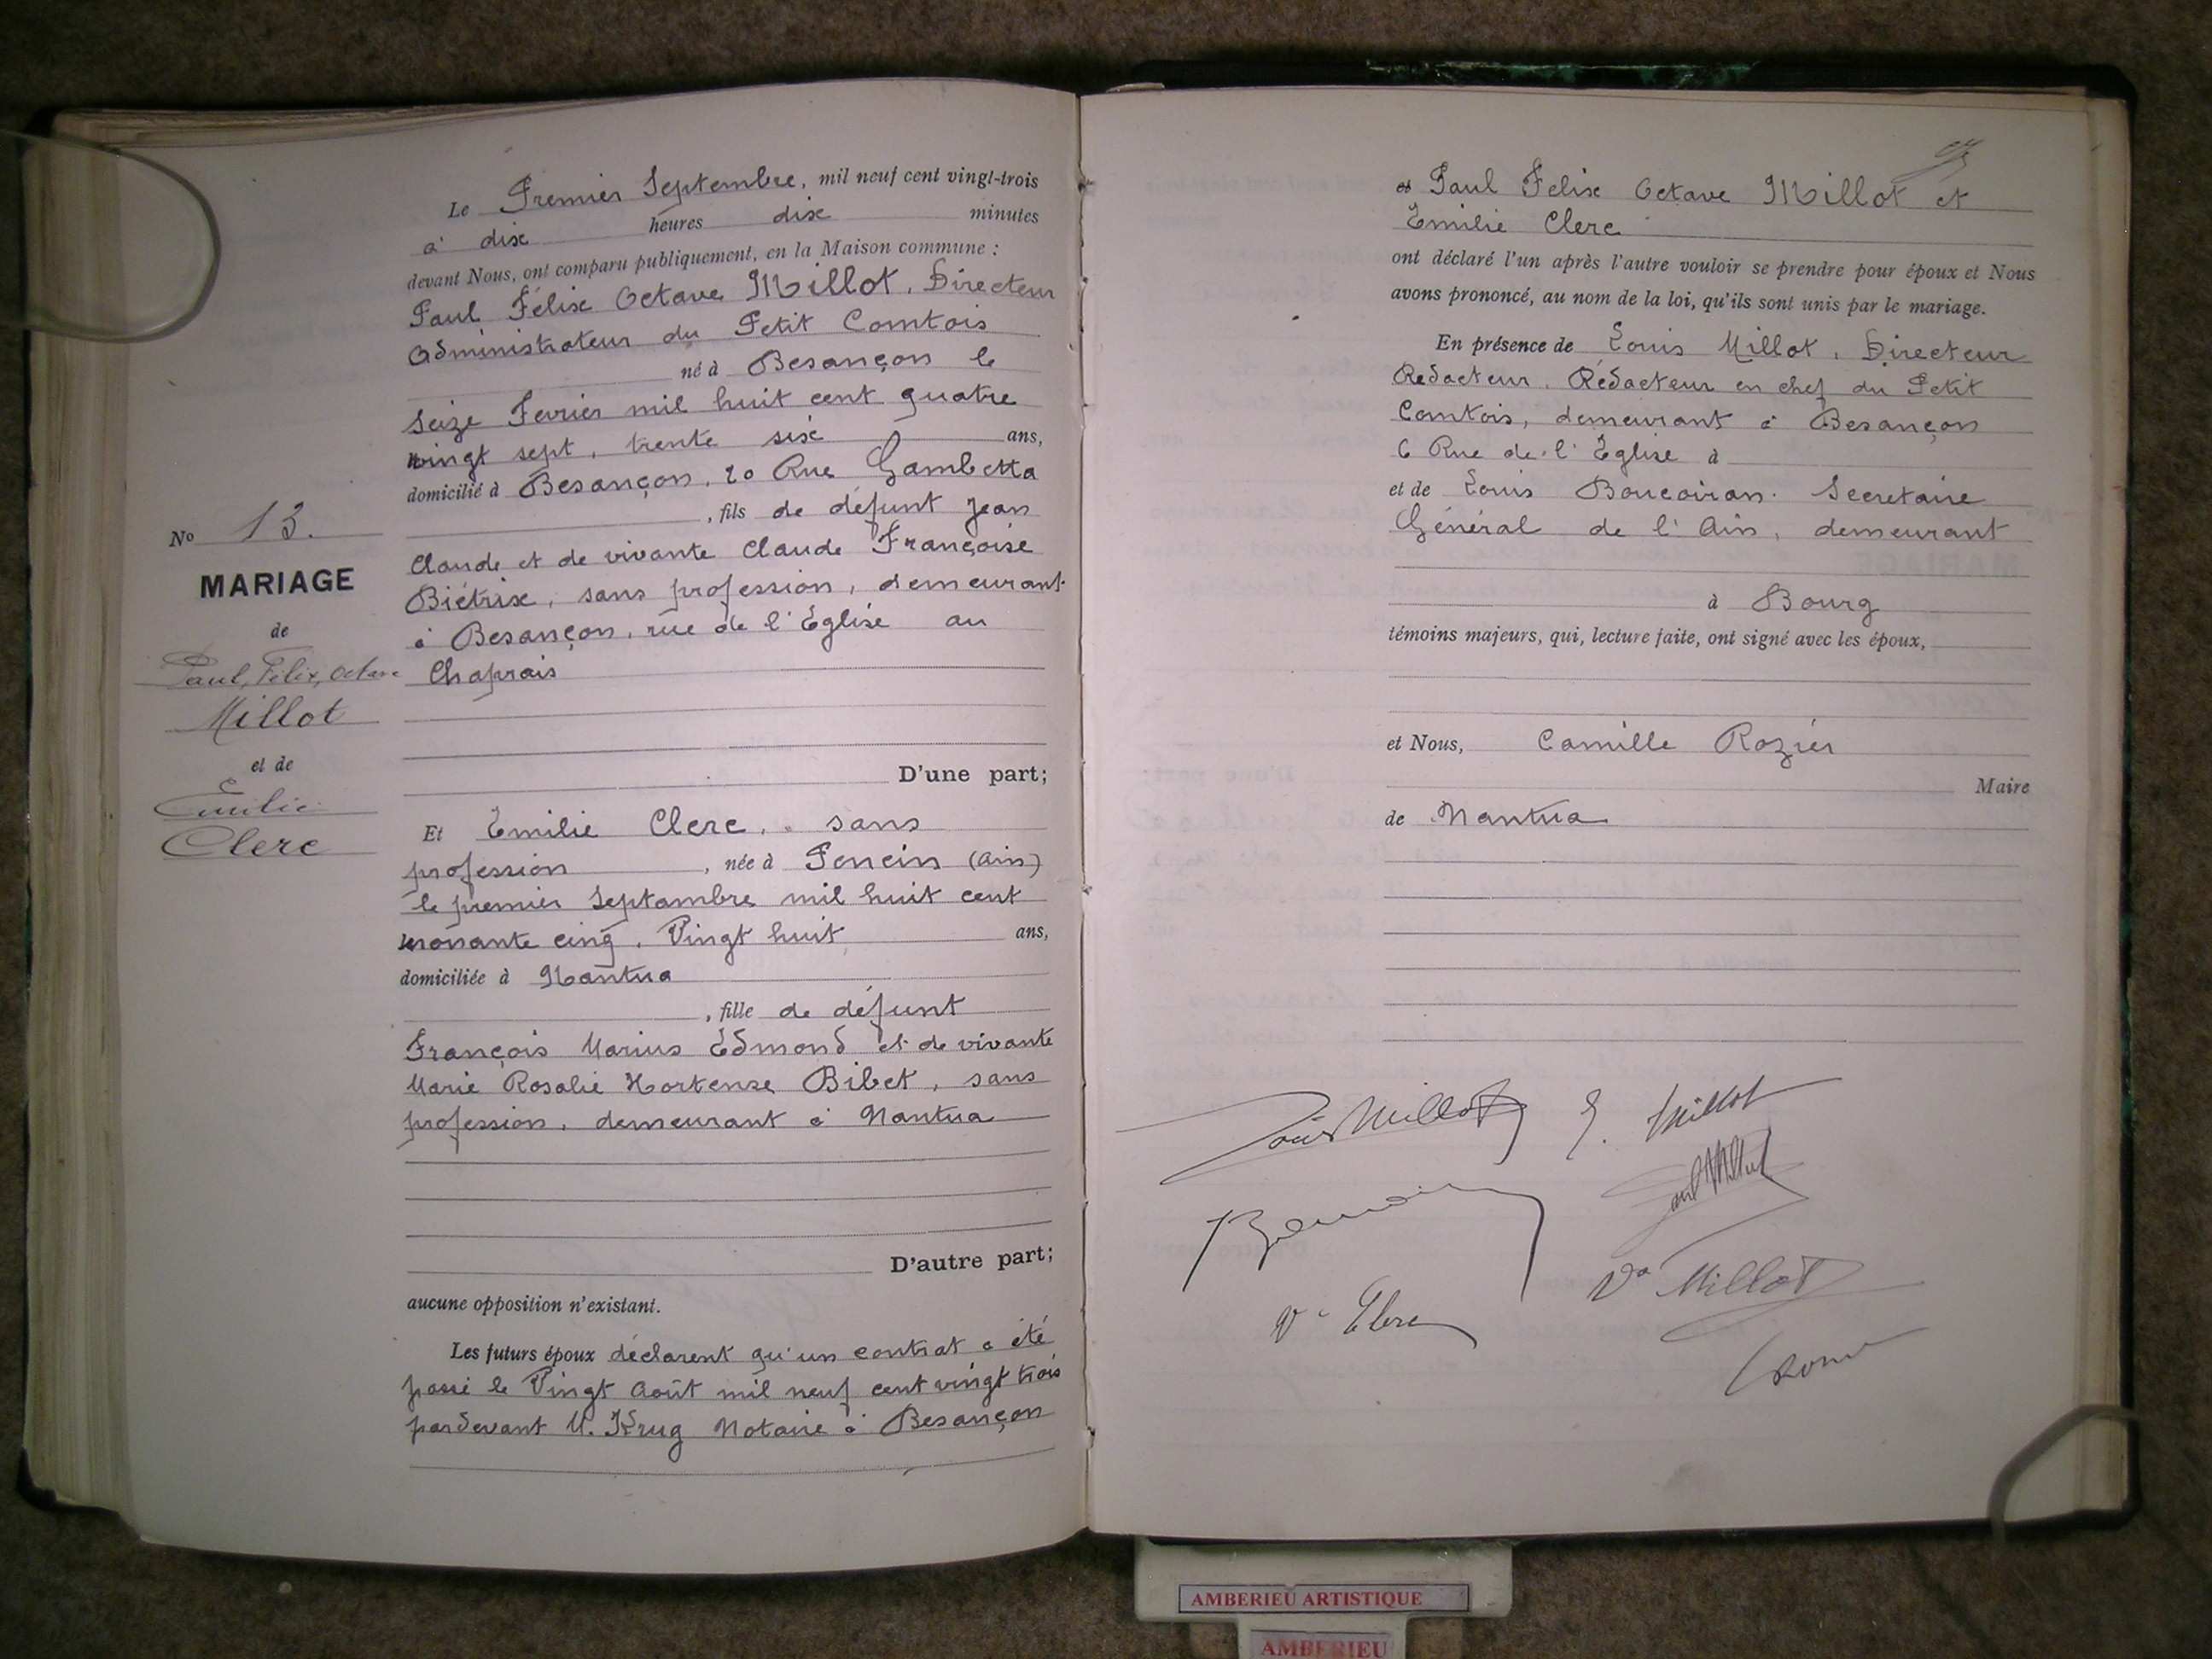 No 13.
MARIAGE
de
Paul, Félix, Octave
Millot
et de
Emilie
Clerc
Le Premier Septembre, mil neuf cent vingt-trois
à dix heures dix minutes
devant Nous, ont comparu publiquement, en la Maison commune :
Paul Félix Octave Millot, Directeur
Administrateur du Petit Comtois
né à Besançon le
seize Fevrier mil huit cent quatre
vingt sept, trente six ans,
domicilié à Besançon, 20 Rue Gambetta
, fils de défunt Jean
Claude et de vivante Claude Françoise
Biétrix, sans profession, demeurant
à Besançon, rue de l'Église au
Chaprais
D'une part;
Et Emilie Clerc, sans
profession, née à Poncin (Ain)
le premier Septambre mil huit cent
nonante cinq, Vingt huit ans,
domiciliée à Nantua
, fille de défunt
François Marius Edmond et de vivante
Marie Rosalie Hortense Bibet, sans
profession, demeurant à Nantua
D'autre part;
aucune opposition n'existant.
Les futurs époux déclarent qu'un contrat a été
passé le Vingt Août mil neuf cent vingt trois
pardevant M. Krug Notaire à Besançon
Paul Felix Octave Millot et
Emilie Clerc
ont déclaré l'un après l'autre vouloir se prendre pour époux et Nous
avons prononcé, au nom de la loi, qu'ils sont unis par le mariage.
En présence de Louis Millot, Directeur
Redacteur, Rédacteur en chef du Petit
Comtois, demeurant à Besançon
6 Rue de l'Eglise à
et de Louis Boucoiran. Secretaire
Général de l'Ain, demeurant
à Bourg
témoins majeurs, qui, lecture faite, ont signé avec les époux,
et Nous, Camille Rozier
Maire
de Nantua
Louis Millot E. Millot
Paul Millot
Ve Millot
Ve Clerc
AMBERIEU ARTISTIQUE
AMBERIEU